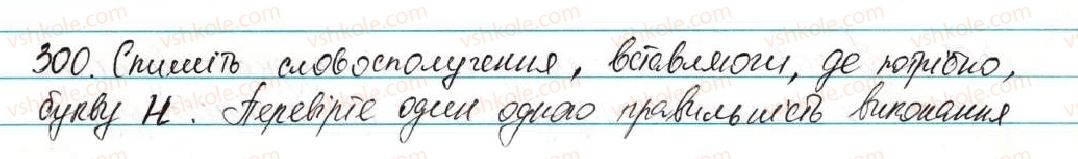 300. Спишіть словосполучення, вставляючи, де потрібно,
букву Н. Перевірте один одного правильність виконання